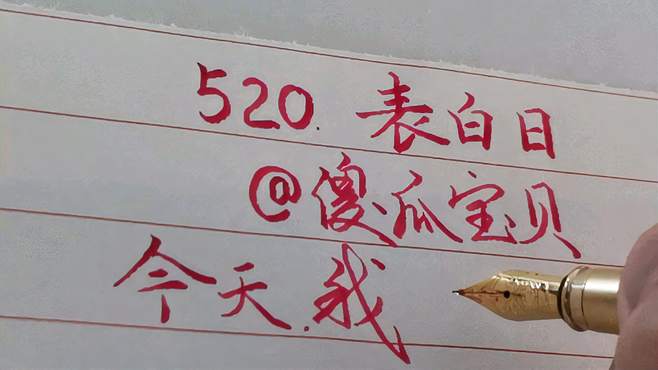 520.表白日
@傻瓜宝贝
今天.我